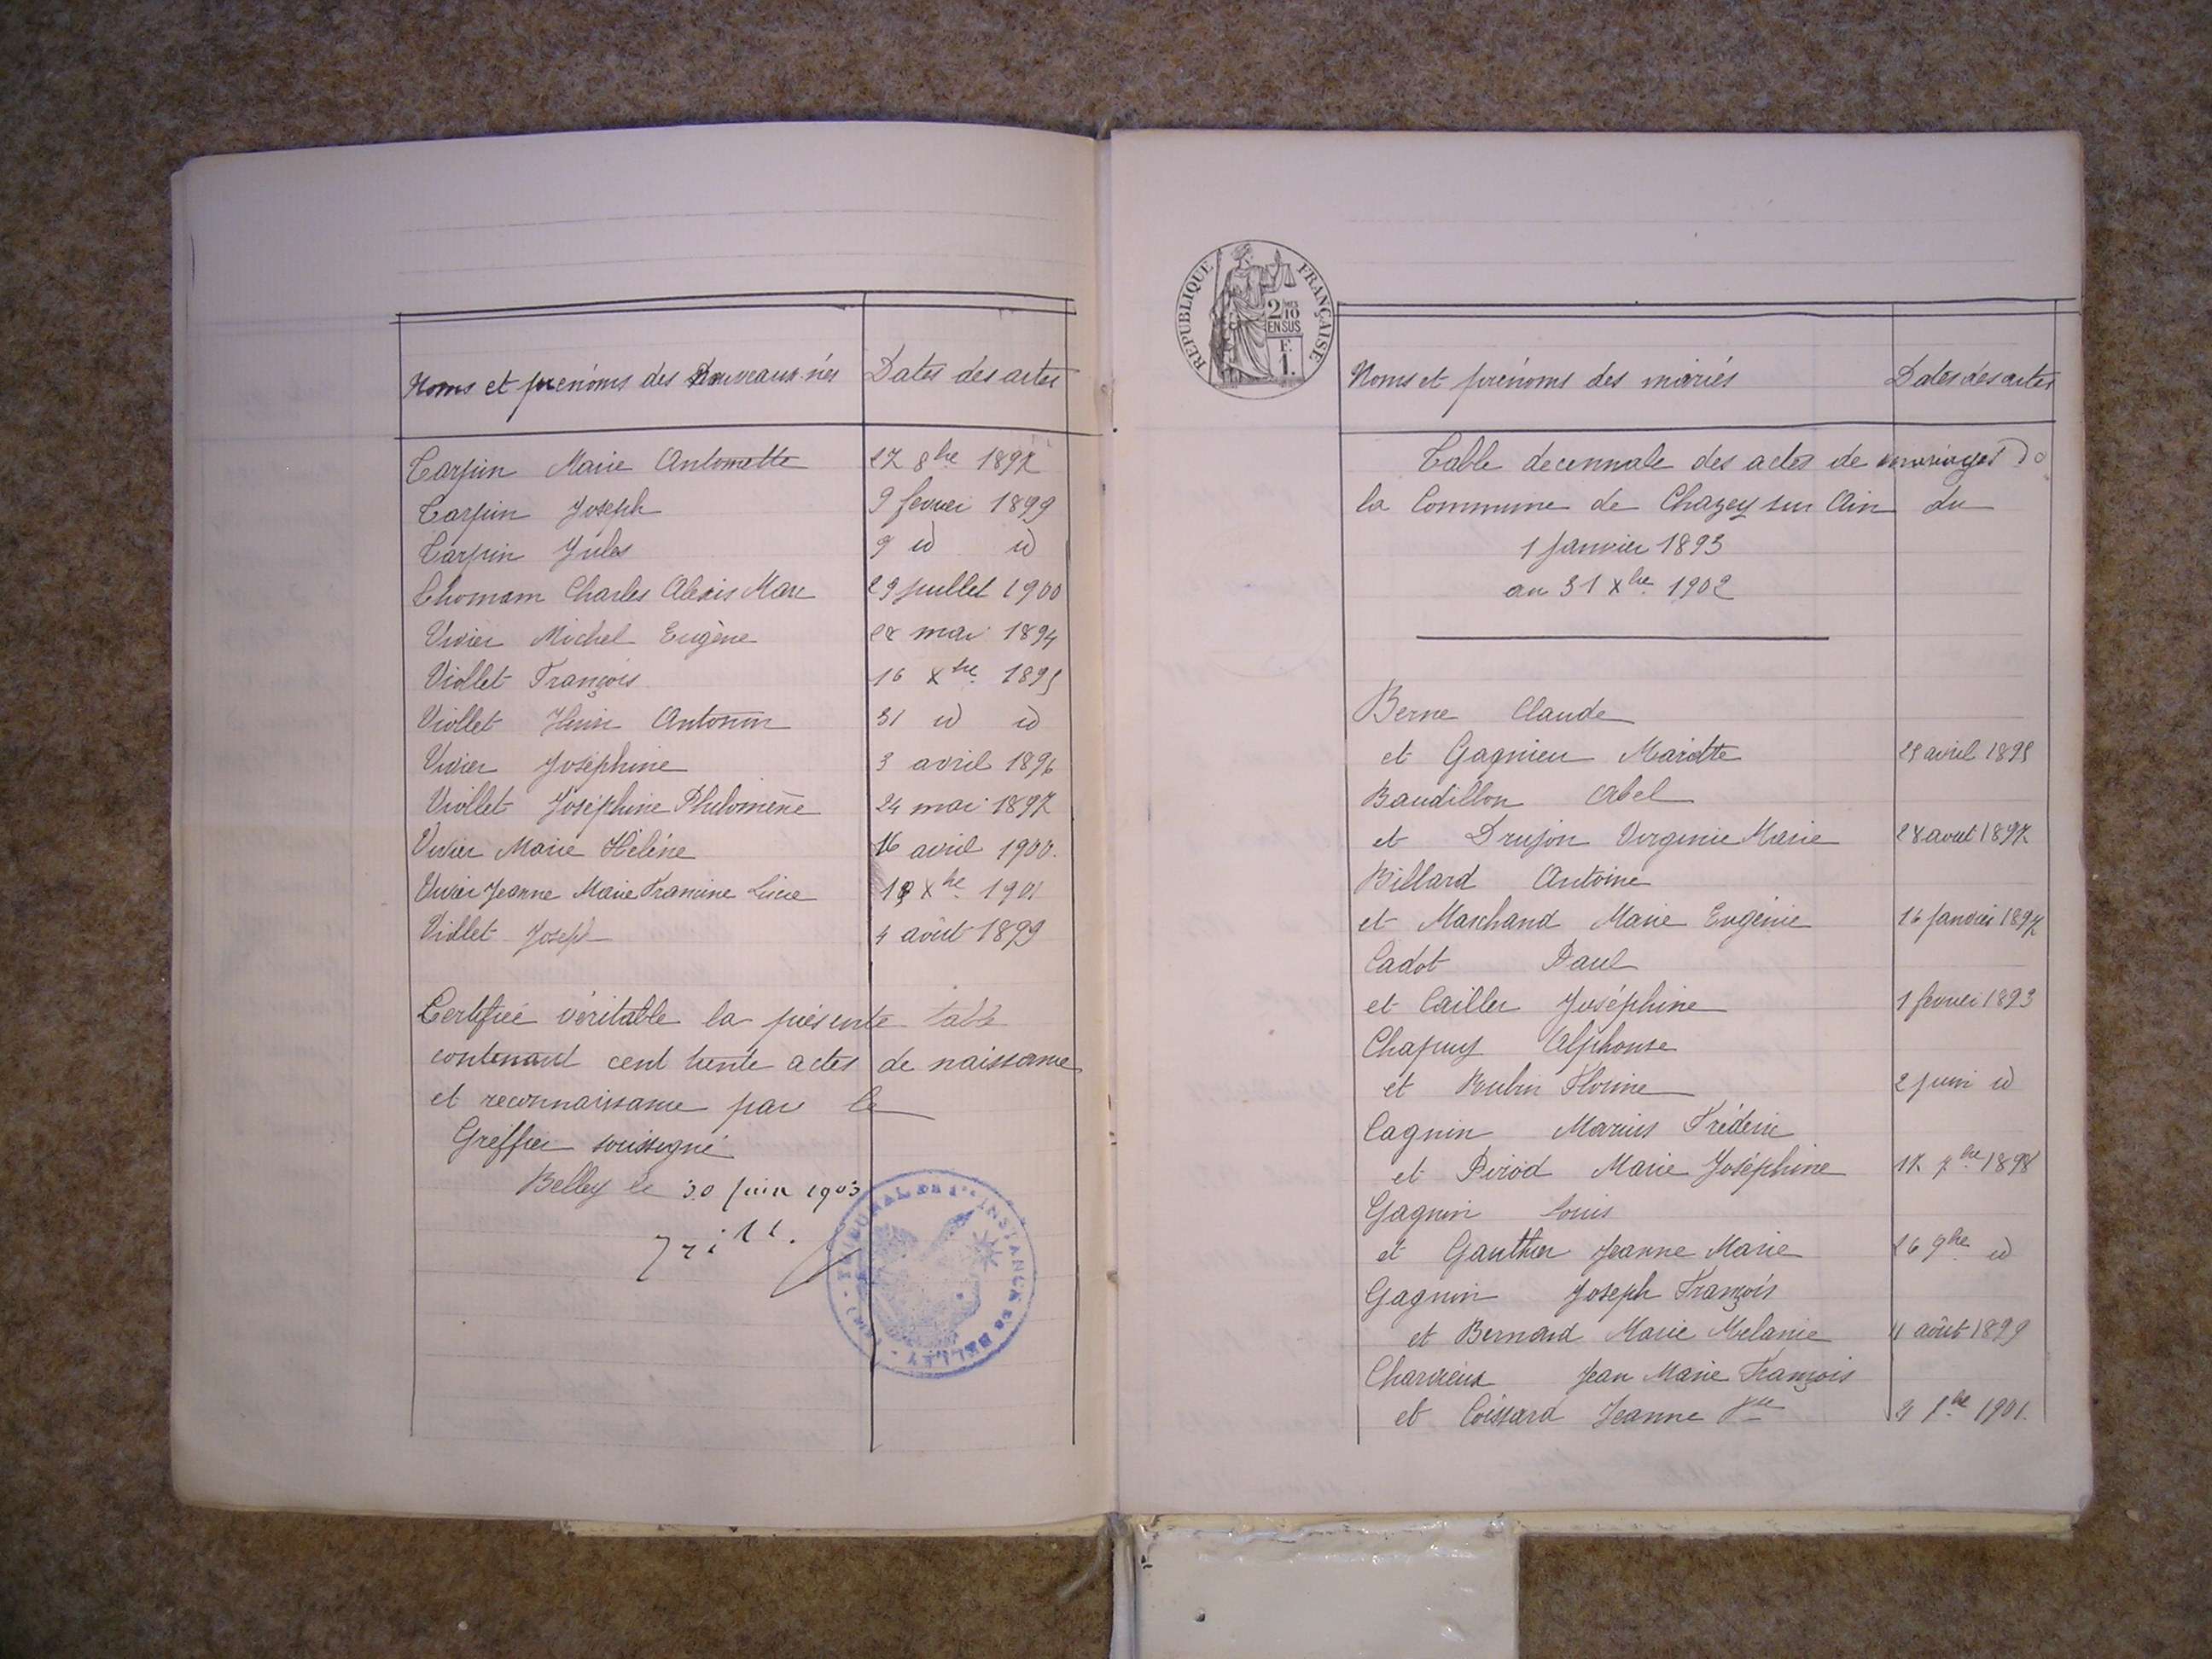 Noms et prénoms des Nouveaux-nés Dates des actes
Tarpin Marie Antoinette 27 8bre 1897
Tarpin Joseph 9 fevrier 1899
Tarpin Jules 9 id id
Thomam Charles Alexis Marc 29 juillet 1900
Vivier Michel Eugène 28 mai 1894
Viollet François 16 Xbre 1895
Viollet Henri Antonin 31 id id
Vivier Joséphine 3 avril 1896
Viollet Joséphine Philomène 24 mai 1897
Vivier Marie Hélène 16 avril 1900.
Vivier Jeanne Marie Francine Lucie Xbre 1901
Viollet Joseph 4 août 1899
Certifiée véritable la présente table
contenant cent trente actes de naissance
et reconnaissance par le
Greffier soussigné
Belley le 30 juin 1903
TRIBUNAL DE 1re INSTANCE DE BELLEY
REPUBLIQUE FRANÇAISE
2/10 MES
EN SUS
F.
1.
Noms et prénoms des mariés Dates des actes
Table decennale des actes de mariages de
la Commune de Chazey sur Ain du
1 Janvier 1893
au 31 Xbre 1902
Berne Claude
et Gagnieu Mariette avril 1895
Baudillon Abel
et Drujon Virginie Marie 28 aout 1897
Billard Antoine
et Marchand Marie Eugénie 16 Janvier 1897
Cadot Paul
et Cailler Joséphine 1 fevrier 1893
Chapuy Alphonse
et Rubin Florine 2 juin id
Cagnin Marius Fréderic
et Pirod Marie Joséphine 17 7bre 1898
Gagnin Louis
et Gauthier Jeanne Marie 26 9bre id
Gagnin Joseph François
et Bernard Marie Melanie août 1899
Charvieux Jean Marie François
et Coissard Jeanne 1901.